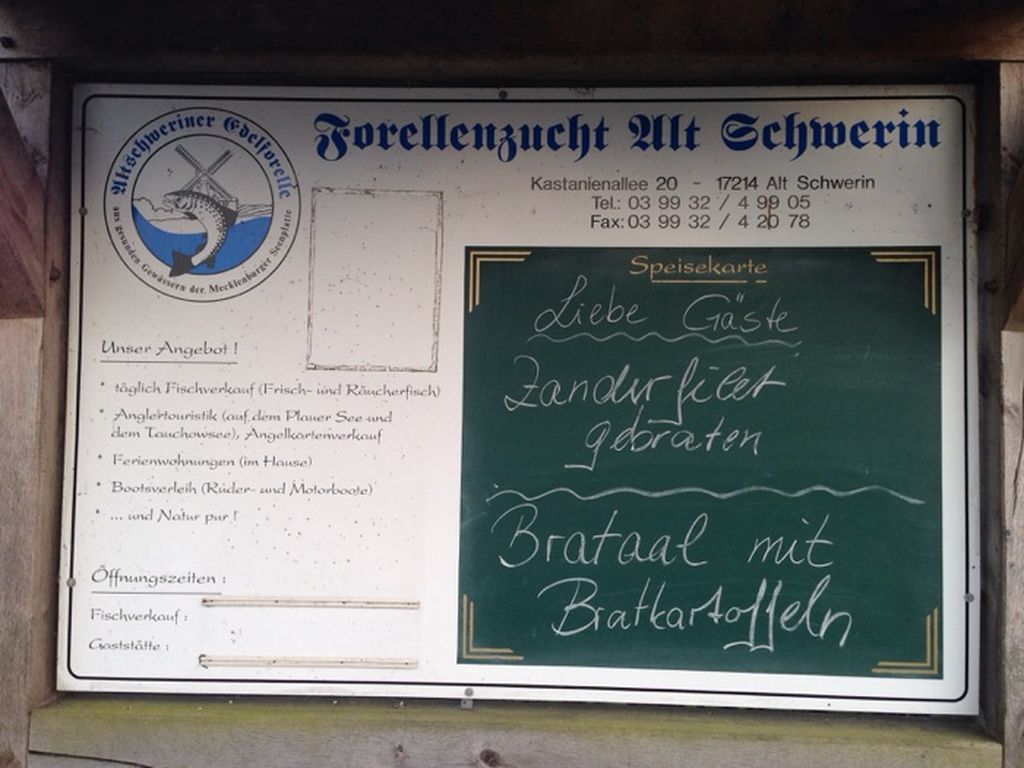 Altschweriner Edelforelle
aus gesunden Gewässern der Mecklenburger Seenplatte
Forellenzucht Alt Schwerin
Kastanienallee 20 - 17214 Alt Schwerin
Tel.: 03 99 32 / 4 99 05
Fax: 03 99 32 / 4 20 78
Unser Angebot !
* täglich Fischverkauf (Frisch- und Räucherfisch)
* Anglertouristik (auf dem Plauer See und
dem Tauchowsee), Angelkartenverkauf
* Ferienwohnungen (im Hause)
* Bootsverleih (Ruder- und Motorboote)
* ... und Natur pur !
Öffnungszeiten :
Fischverkauf :
Gaststätte :
Speisekarte
Liebe Gäste
Zanderfilet
gebraten
Brataal mit
Bratkartoffeln